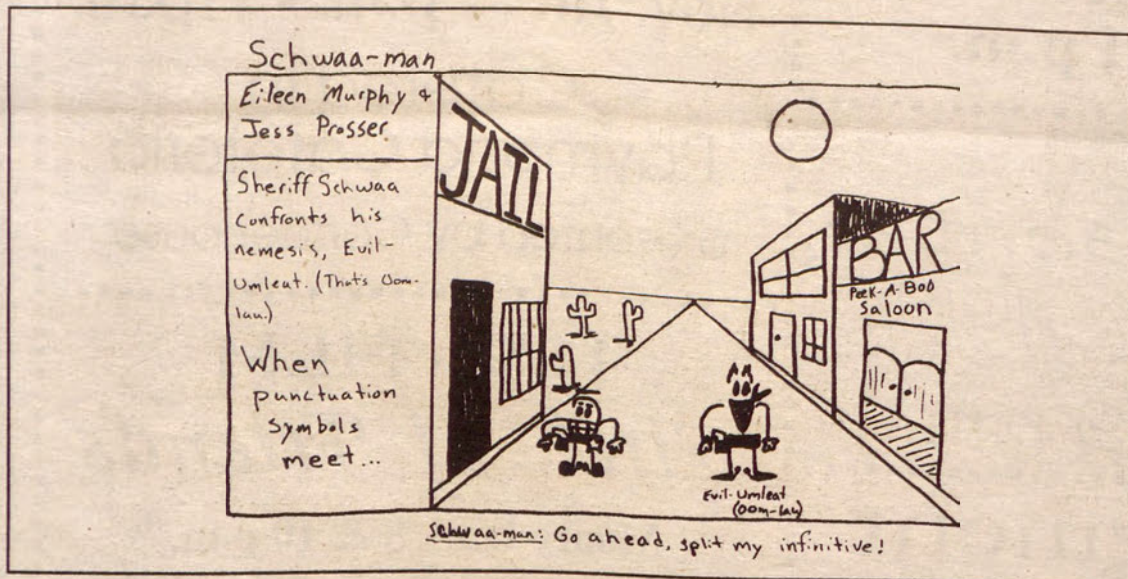 Schwaa-man
Eileen Murphy &
Jess Prosser
Sheriff Schwaa
confronts his
nemesis, Evil-
Umleat. (That's Oom-
lau.)
When
punctuation
symbols
meet...
JAIL
BAR
Peek-A-Boo
Saloon
Evil-Umleat
(Oom-lau)
Schwaa-man: Go ahead, split my infinitive!